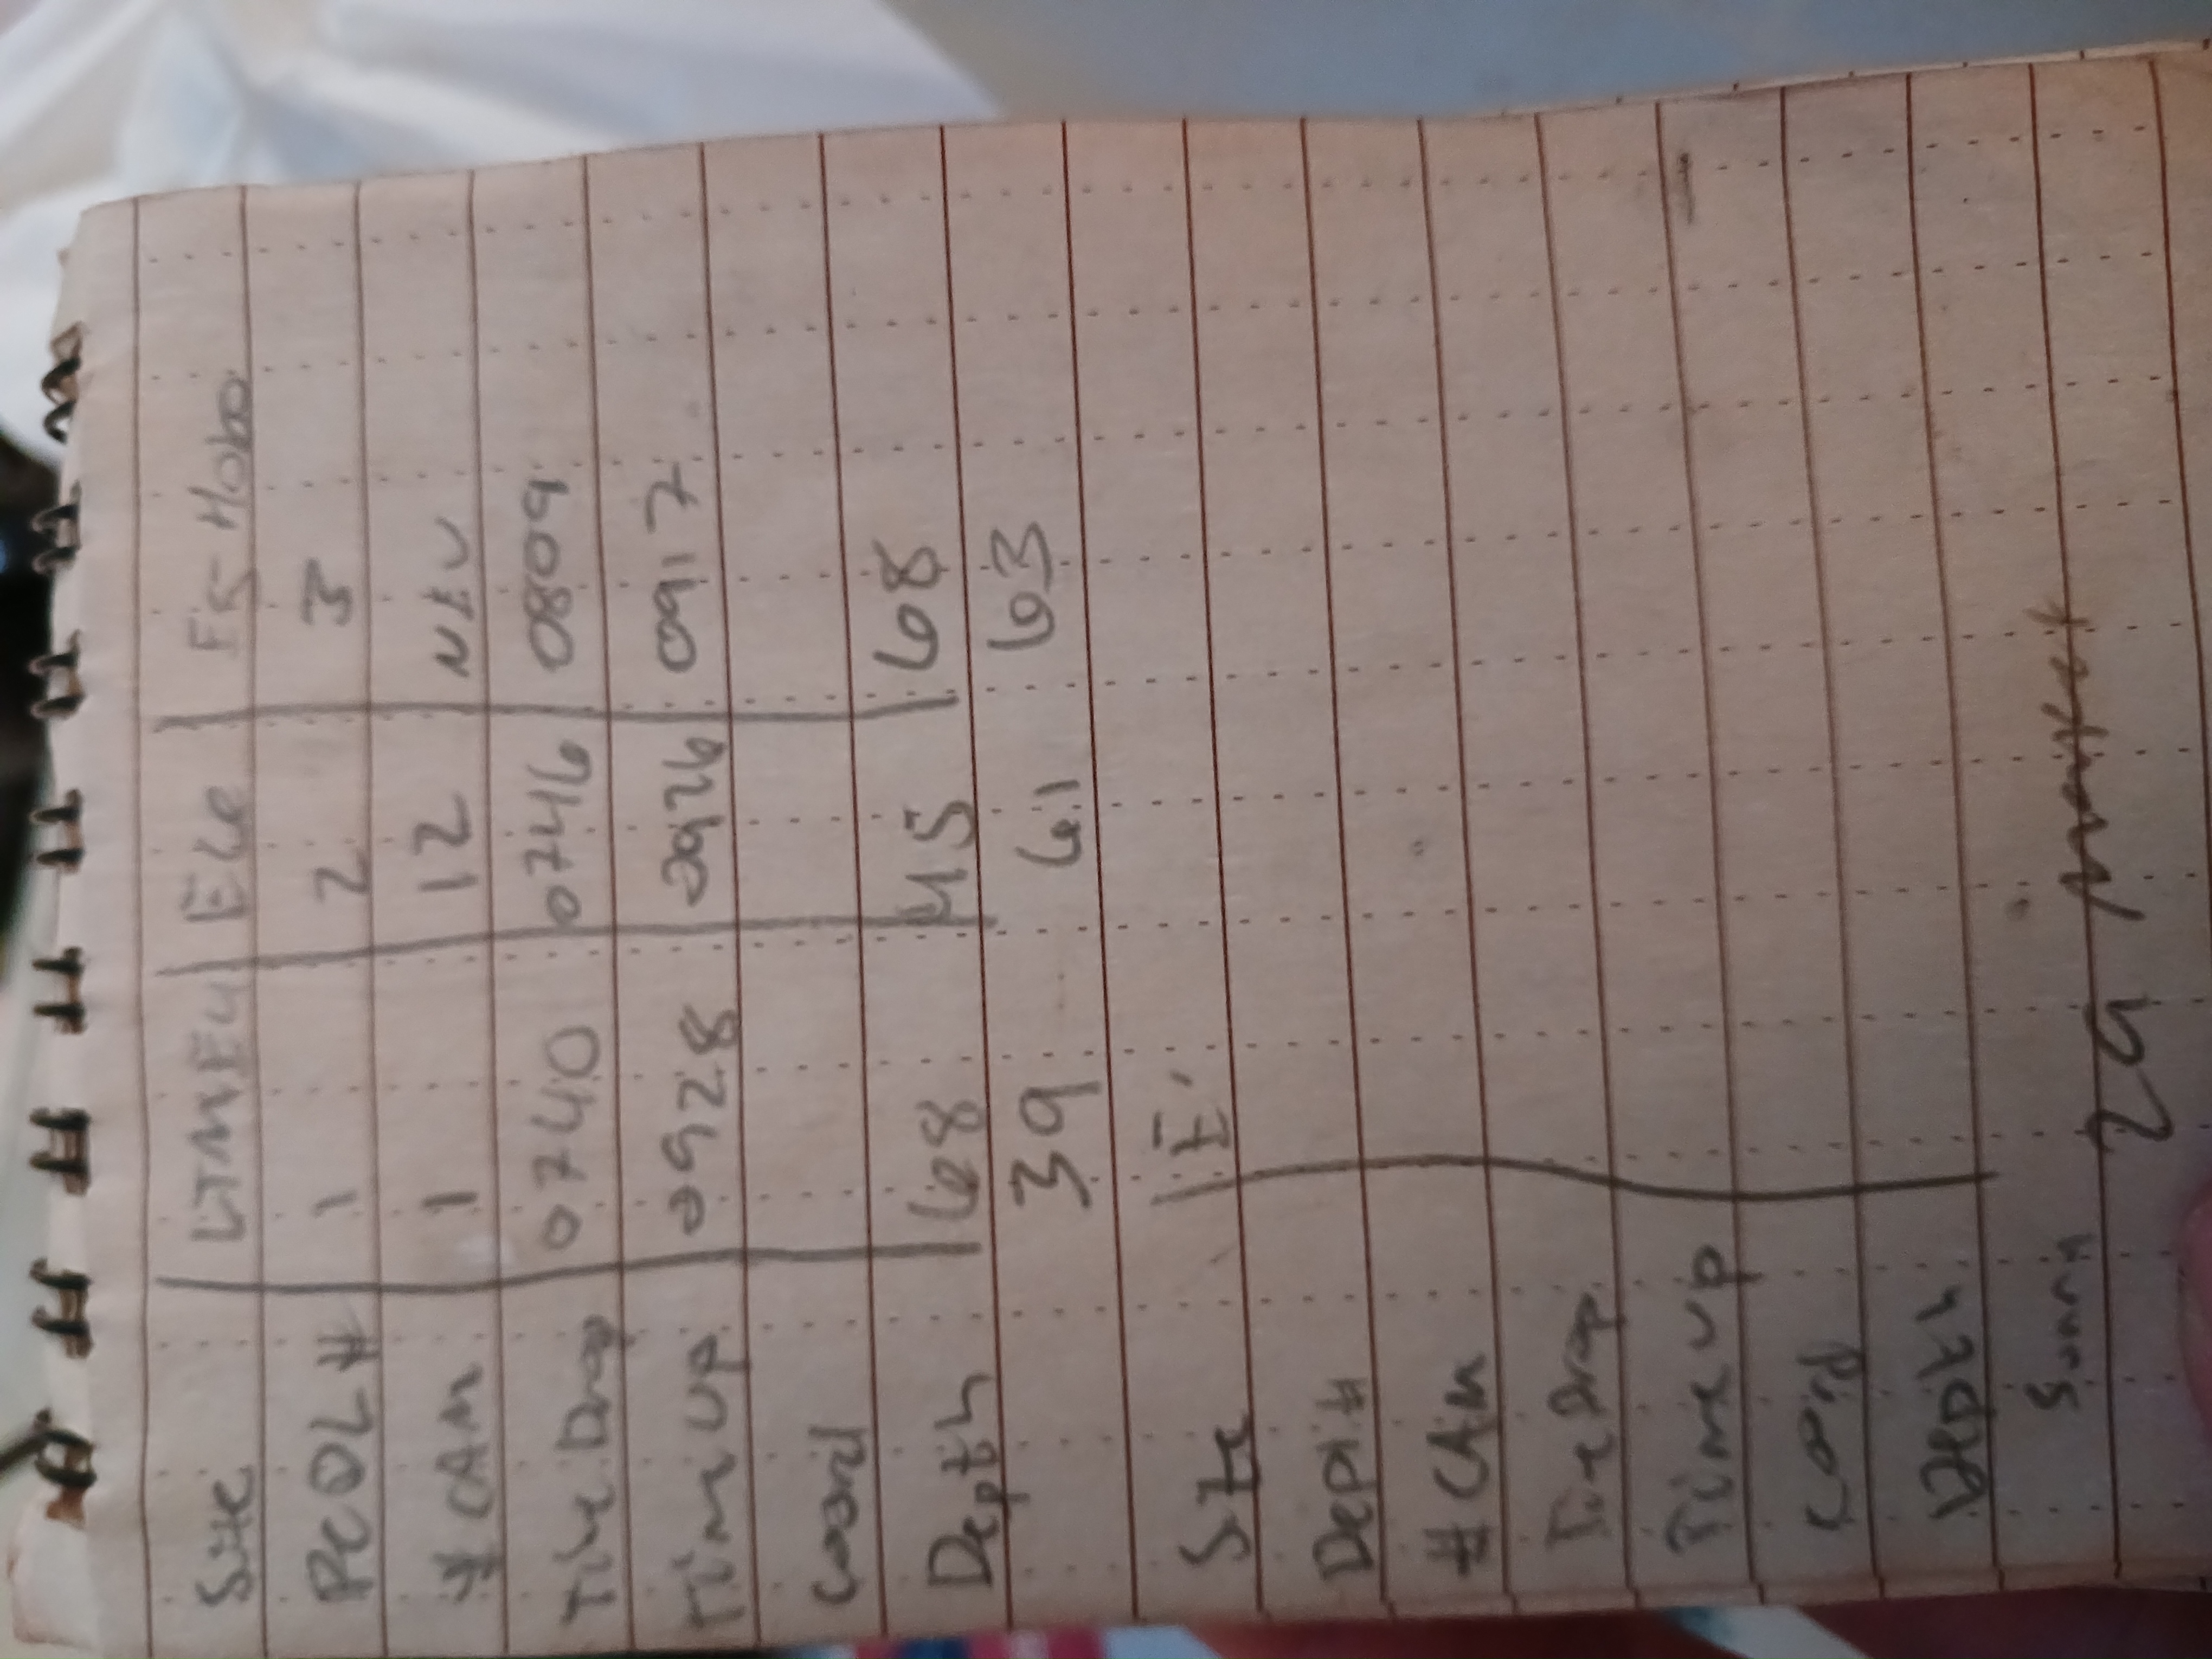 Site LTM E4 E6 E5 Hobo
PCOL # 1 2 3
# CAM 1 12 NEW
Time Drop 0740 0746 0809
Time up 0928 0926 0917
Coord
Depth 68 45 68
39 61 63
Site E
Depl #
# CAM
Time Drop
Time up
Coord
Depth
Sunny
29 Market